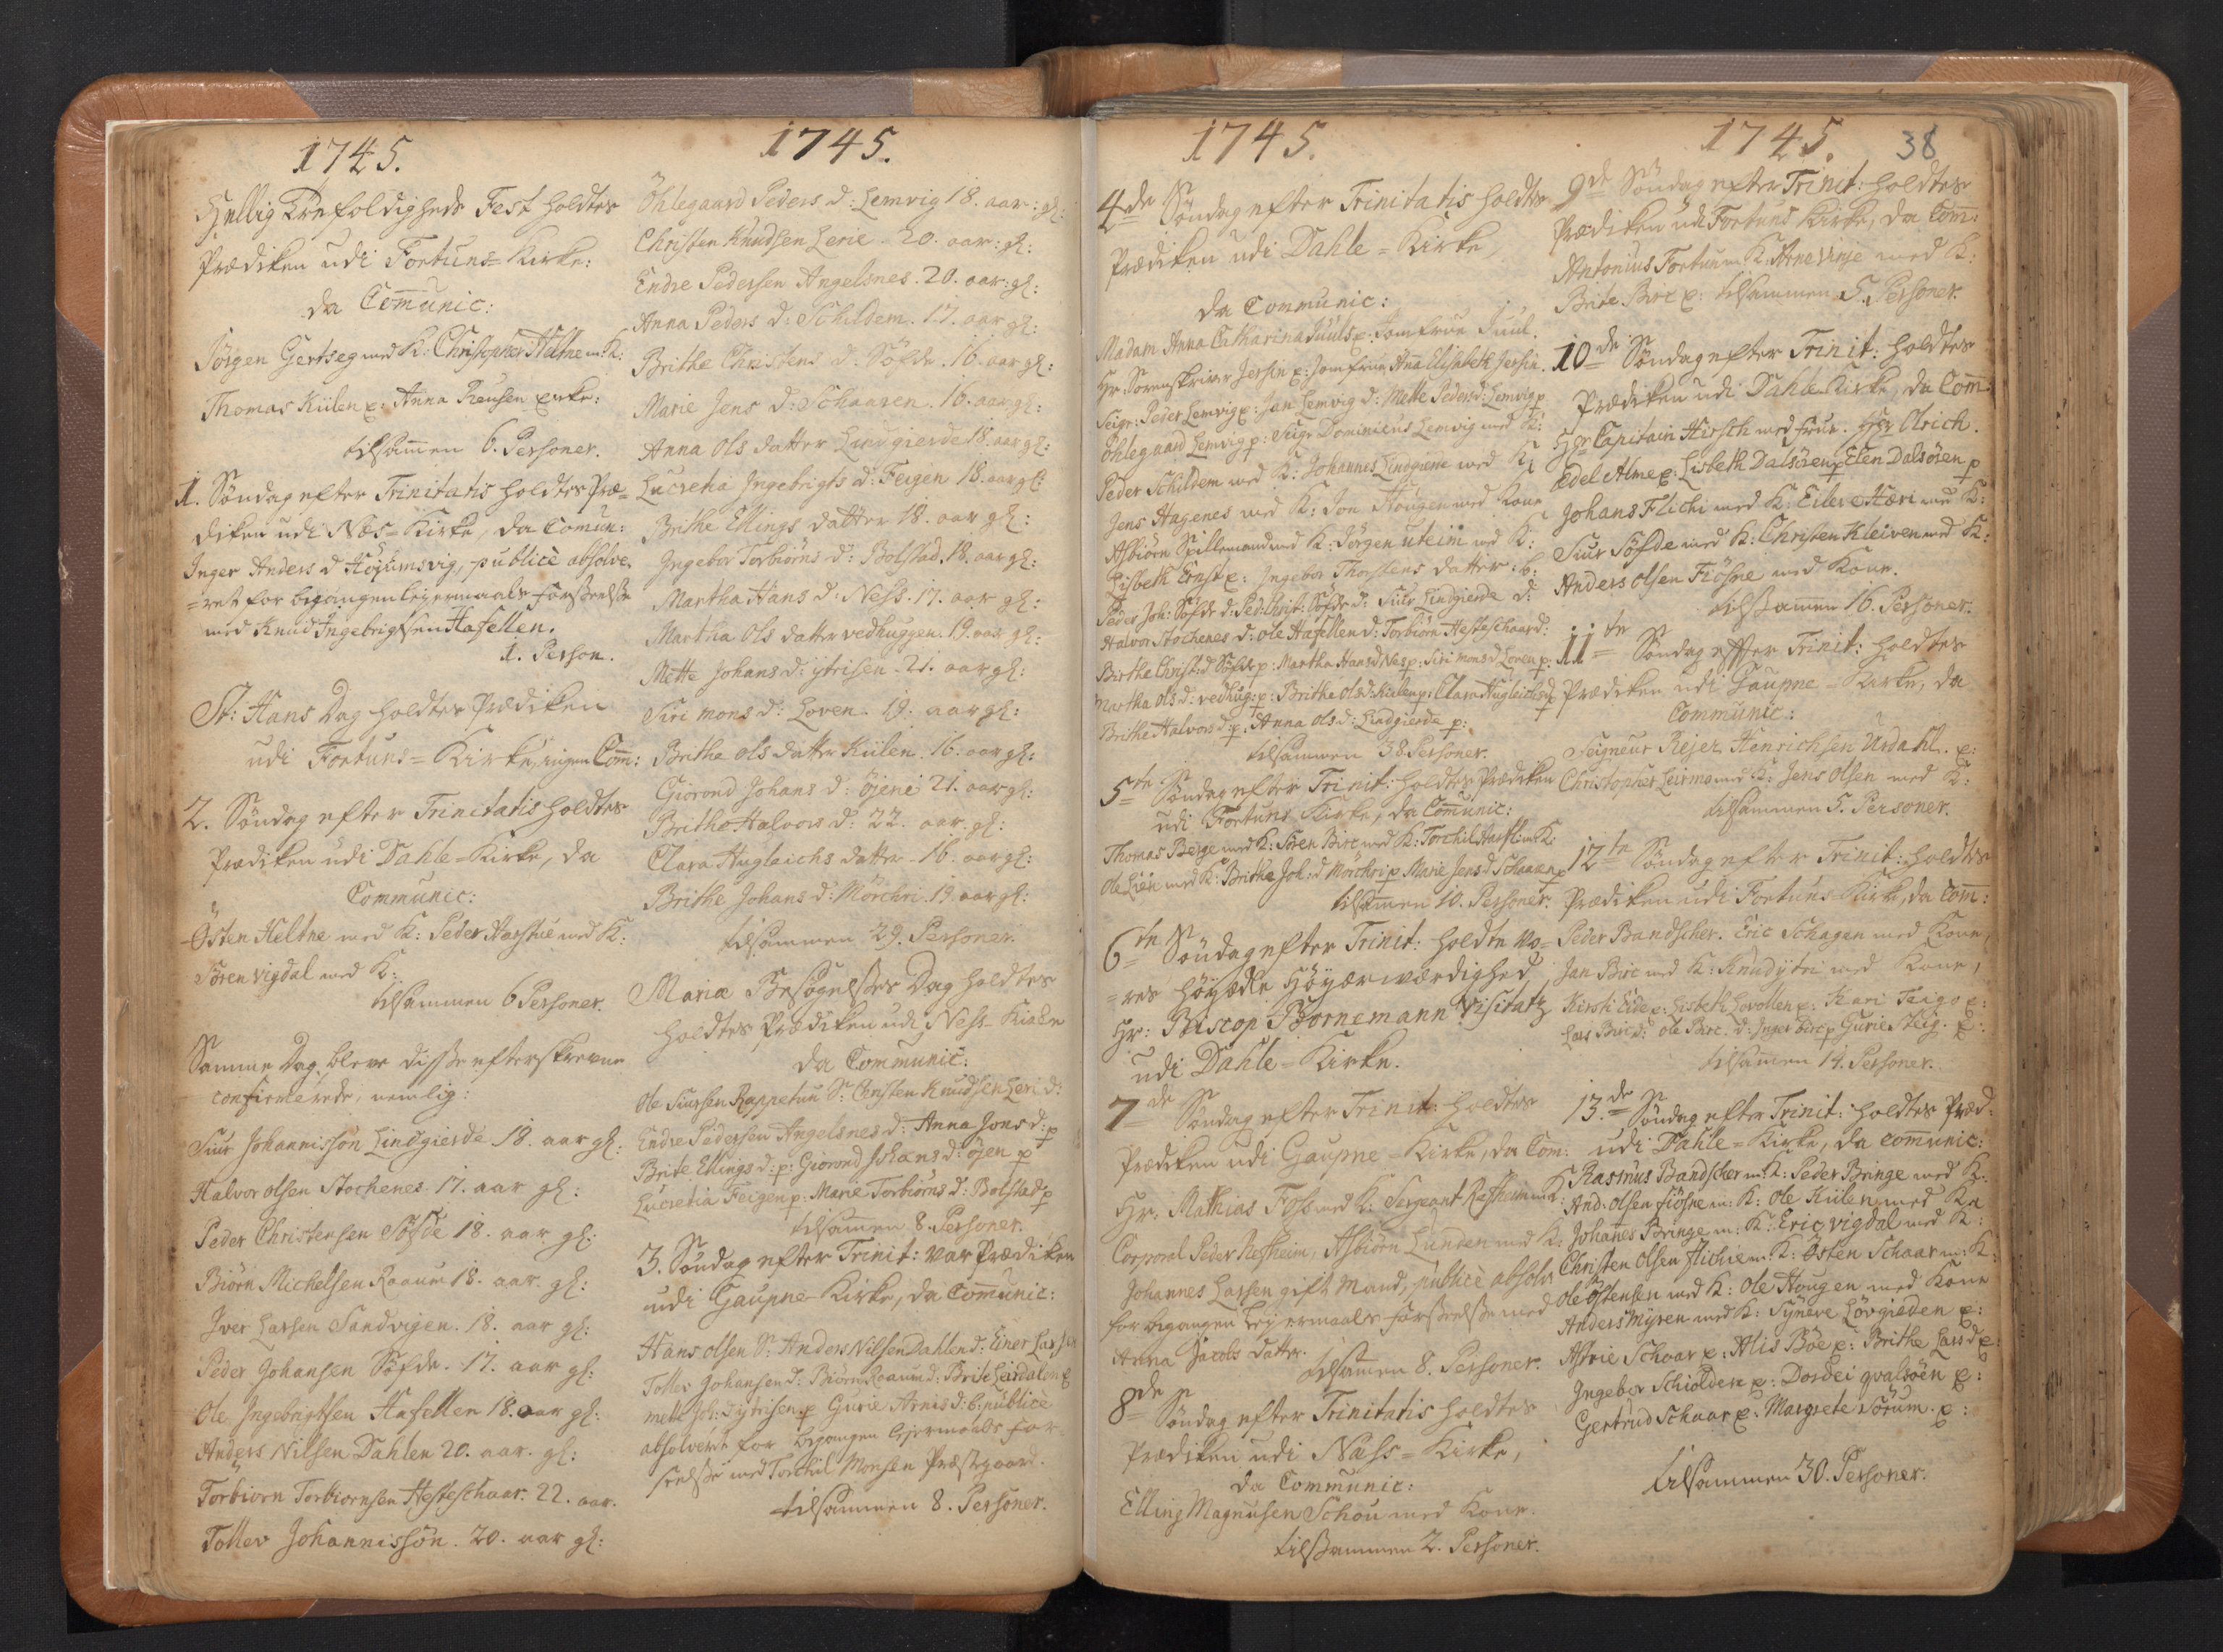 1745.
Hellig Trefoldigheds Fest holdtes
Prædiken udi Fortuns=Kirke:
da Comunic:
Jörgen Gertseg med K: Christopher Heltne m: K:
Thomas Külen e: Anna Reusen enke:
tilsamen 6. Personer.
1. Söndag efter Trinitatis holdtes Præ=
diken udi Næs=Kirke, da Comun:
Inger Anders d Höyumsvig, publicè absolve,
=ret for begangen leyermaals forseelse
med Knud Ingebrigtsen Hafellen.
1. Person.
St: Hans Dag holdtes Prædiken
udi Fortuns=Kirke, ingen Com:
2. Söndag efter Trinitatis holdtes
Prædiken udi Dahle=Kirke, da
Communic:
Östen Heltne med K: Peder Harstue med K:
Sören Vigdal med K:
tilsammen 6 Personer.
Samme Dag bleve disse efterskrevne
confirmerede, nemlig:
Siur Johannisson Lindgierde 18. aar gl:
Halvor olsen Stochenes 17. aar gl:
Peder Christensen Söfde 18. aar gl:
Biörn Michelsen Raaum 18. aar gl:
Iver Larsen Sandvigen. 18. aar gl:
Peder Johansen Söfde. 17. aar gl:
Ole Ingebrigtsen Hafellen 18. aar gl:
Anders Nilsen Dahlen 20. aar. gl:
Torbiörn Torbiornsen Hesteschaar. 22. aar.
Tollev Johannissön. 20. aar gl:
1745.
Öhlegaard Peders d: Lemvig 18. aar: gl:
Christen Knudsen Lerie. 20. aar: gl:
Endre Pedersen Angelsnes. 20. aar: gl:
Anna Peders d: Schildem. 17. aar gl:
Brithe Christens d: Söfde. 16. aar gl:
Marie Jens d: Schaaren. 16. aar gl:
Anna Ols datter Lindgierde 18. aar gl:
Lucretia Ingebrigts d: Feigen 18. aar gl:
Brithe Ellings datter 18. aar gl:
Ingebor Torbiörns d: Bolstad. 18. aar gl:
Martha Hans d: Ness. 17. aar gl:
Martha Ols datter vedhuggen. 19. aar gl:
Mette Johans d: ytrisen. 21. aar gl:
Siri mons d: Loven. 19. aar gl:
Brithe ols datter Külen. 16. aar gl:
Giörond Johans d: öjene 21. aar gl:
Brithe Halvors d: 22. aar. gl:
Clara Hugleichs datter. 16. aar gl:
Brithe Johans d: Mörchri. 19. aar gl:
tilsammen 29. Personer.
Mariæ Besögelses Dag holdtes
holdtes Prædiken udi Ness-Kirke
da Communic:
Ole Siursen Rappetun S: Christen Knudsen Leri d:
Endre Pedersen Angelsnes d: Anna Jons d: p
Brite Ellings d: p: Giörond Johans d: öjen p
Lucretia Feigen p: Marie Torbiörns d: Bolstad p
tilsamen 8. Personer.
3. Söndag efter Trinit: var Prædiken
udi Gaupne-Kirke, da Comunic:
Hans olsen S: Anders Nilsen Dahlen d: Einer Larsen
Tollev Johansen d: Biörn Raaum d: Brite Leirdalen p
mette Joh: d ytrisen p Gurie Arnis d: 6. publicè
absolverede for begangen leyermaals for
seelse med Torchil Monsen Præstgaard.
tilsammen 8. Personer.
1745.
4de Söndag efter Trinitatis holdtes
Prædiken udi Dahle=Kirke,
da Communic:
Madam Anna Catharina Juuls e: Jomfrue Juul.
Hr. Sorenskriver Jersin e: Jomfrue Ana Elisabeth Jersin.
Seigr: Peder Lemvig e: Jan Lemvig d: Mette Pedersd: Lemvig p
Öhlegaard Lemvig p: Seigr Dominicus Lemvig med K:
Peder Schildem med K: Johannes Lindgierde med K:
Jens Hagenes med K: Jon Hougen med Kone
Asbiörn Spillemand med K: Jörgen uteim med K:
Lisbeth Ernst e: Ingebor Thorstens datter: 6:
Peder Joh: Söfde d: Ped: Christ: Söfde d: Siur Lindgierde d:
Halvor Stochenes d: ole Hafellen d: Torbiörn Hesteschaar d:
Birthe Christ: d Söfde p: Martha Hansd Nes p: Siri mons d Loven p:
Martha Ols d: vedhug: p: Brithe Ols d: Külen p: Clara Hugleichs d p
Brithe Halvors d p. Anna Ols d: Lindgierde p:
tilsammen 38 Personer.
5te Söndag efter Trinit: holdtes Prædiken
udi Fortuns Kirke, da Comunic:
Thomas Berge med K: Sören Birc med K: Torchil Harst: m K:
Ole Lien med K: Brithe Joh: d Mörchri p Marie Jens d Schaaren p
tilsamen 10. Personer.
6te Söndag efter Trinit: holdte Vo=
=res höyædle Höyærværdighed
Hr: Biscop Bornemann Visitatz
udi Dahle=Kirke.
7de Söndag efter Trinit: holdtes
Prædiken udi Gaupne=Kirke, da Com:
Hr: Mathias Foss med K: Sergeant Refheim m K:
Corporal Peder Refheim, Asbiörn Lunden med K:
Johannes Larsen gift Mand, publicè absolv
for begangen Leyermaals forseelse med
Anna Jacobs datter.
tilsamen 8. Personer.
8de Söndag efter Trinitatis holdtes
Prædiken udi Næss=Kirke,
da Communic:
Elling Magnusen Schou med Kone.
tilsammen 2. Personer.
1745. 38
9de Söndag efter Trinit: holdtes
Prædiken udi Fortuns Kirke, da Com:
Antonius Fortun m K: Arne Vinje med K:
Brite Birc e: tilsammen 5. Personer.
10de Söndag efter Trinit: holdtes
Prædiken udi Dahle Kirke, da Com:
Hr Capitain Hirsch med frue. Hr Olrich.
Ædel Alme e: Lisbeth Dalsören p Elen Dalsören p
Johans Flichi med K: Eilere Hæri med K:
Siur Söfde med K: Christen Kleiven med K:
Anders Olsen Fiösne med Kone.
tilsamen 16. Personer.
11te Söndag efter Trinit: holdtes
Prædiken udi Gaupne-Kirke, da
Communic:
Seigneur Rejer Henrichsen Urdahl. e:
Christopher Leirmo med K: Jens Olsen med K:
tilsammen 5. Personer.
12te Söndag efter Trinit: holdtes
Prædiken udi Fortuns Kirke, da Com:
Peder Bandscher. Eric Schagen med Kone,
Jan Birc med K: Knud ytri med Kone,
Kirsti Eide e: Lisbeth Lovollen e: Kari Teigo e:
Lars Birc d: ole Birc. d: Inger Birc p Gurie Steig. e:
tilsamen 14. Personer.
13.de Söndag efter Trinit: holdtes Præd:
udi Dahle=Kirke, da comunic:
Rasmus Bandscher m: K: Peder Bringe med K:
And. olsen fiösne m: K: ole Külen med K:
Johanes Bringe m: K: Eric vigdal med K:
Christen Olsen flichie m: K: Östen Schaar m: K:
Ole Östensen med K: Ole Hougen med Kone
Anders Myren med K: Synneve Lövgieden e:
Astrie Schaar e: Alis Böe e: Brithe Lars d e:
Ingebor Schiolden e: Dordei qvalsöen e:
Gertrud Schaar e: Margrete Sörum. e:
tilsammen 30. Personer.